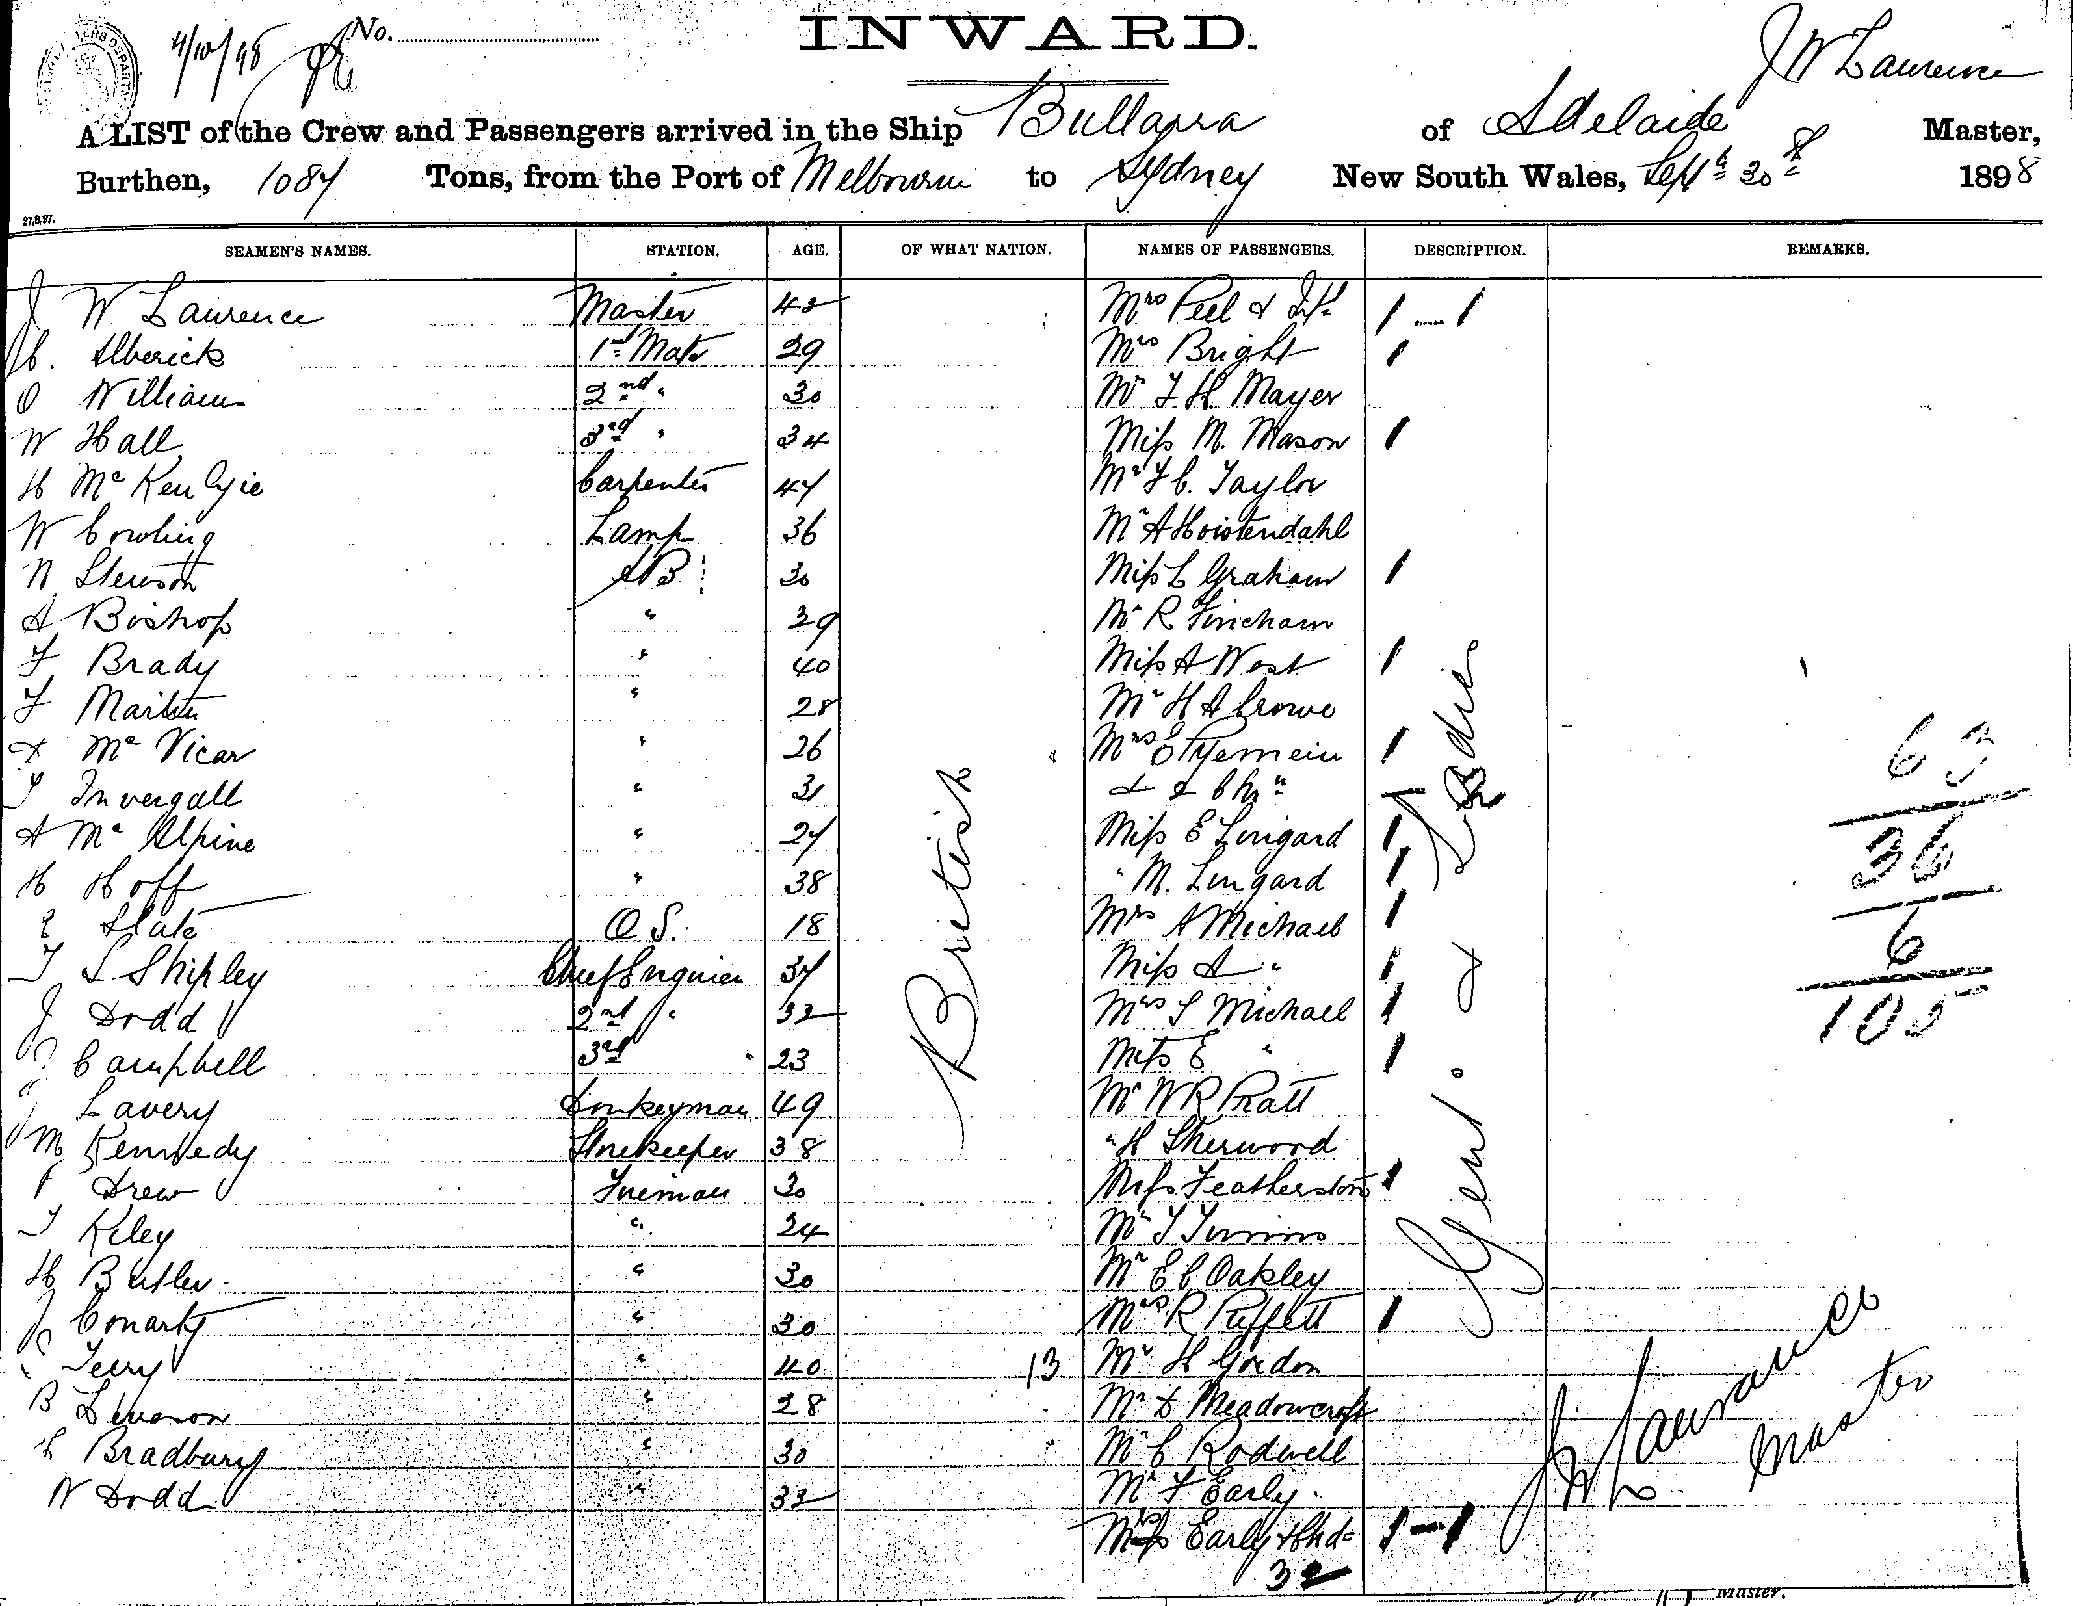 4/10/98 No.
INWARD.
J W Laurence
A LIST of the Crew and Passengers arrived in the Ship Bullarra of Adelaide Master,
Burthen, 1087 Tons, from the Port of Melbourne to Sydney New South Wales, Septr 30th 1898
27.9.97.
SEAMEN'S NAMES. STATION. AGE. OF WHAT NATION. NAMES OF PASSENGERS. DESCRIPTION. REMARKS.
J W Laurence Master 42 Mrs Peel & Inft 1 — 1
Alberick 1st Mate 29 Mrs Bright 1
O Williams 2nd " 30 Mr F H Mayer
W Hall 3rd " 34 Miss M. Mason 1
H McKenzie Carpenter 47 Mr F C. Taylor
W Cowling Lamp 36 Mr A Hoistendahl
N Stenson AB 30 Miss L Graham 1
A Bishop " 39 Mr R Fincham
F Brady " 40 Miss A West 1
F Martin " 28 Mr H A Crowe
Mc Vicar " 26 Mrs 1
Invergall " 31 & 2 Chn
A McAlpine " 27 Miss E Lingard 1
H Hoff " 38 " M. Lingard 1
Slate O S. 18 Mrs A Michael 1
T S Shipley Chief Engineer 37 Miss A " 1
J Dodd 2nd " 32 Mrs S Michael 1
Campbell 3rd " 23 Miss E " 1
Lavery Donkeyman 49 Mr W R Pratt
M Kennedy Storekeeper 38 " H Sherwood
Drew Fireman 30 Miss Featherston 1
T Kiley " 24 Mr T Timmins
H Butler " 30 Mr E C Oakley
J Conarty " 30 Mrs R Puffett 1
Terry " 40 13 Mr H Gordon
B " 28 Mr D Meadowcroft
Bradbury " 30 Mr C Rodwell
W Dodd " 33 Mr F Early
Mrs Early & Chd 1 — 1
32
British
Gent. & Ladies
63
36
6
105
J W Laurance
Master
Master.